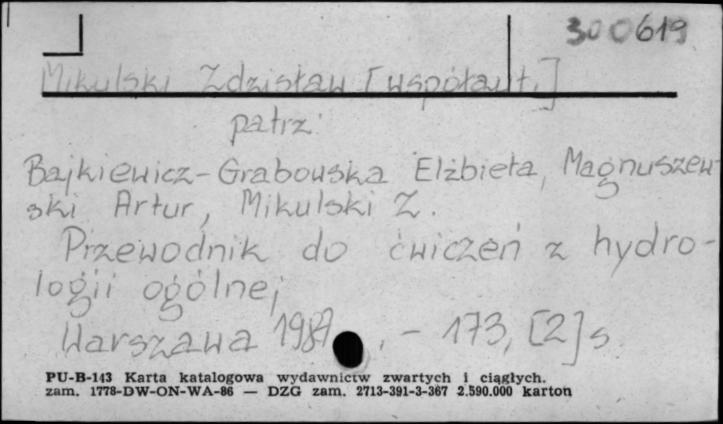 300619
Mikulski Zdzisław [współaut.]
patrz:
Bajkiewicz-Grabowska Elżbieta, Magnuszew-
ski Artur, Mikulski Z.
Przewodnik do ćwiczeń z hydro-
logii ogólnej
Warszawa 1987. - 173, [2] s
PU-B-143 Karta katalogowa wydawnictw zwartych i ciągłych.
zam. 1778-DW-ON-WA-86 — DZG zam. 2713-391-3-367 2.590.000 karton